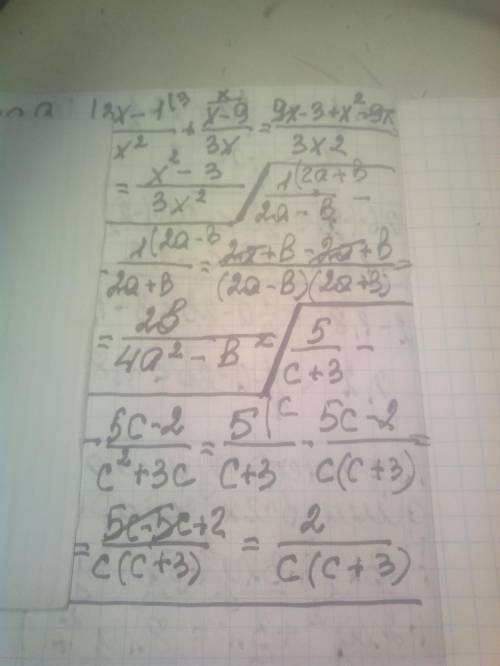 12x-1(3 / x² + x(x-9 / 3x = 9x-3+x²-9x / 3x2
= x²-3 / 3x²
1(2a+b / 2a-b -
- 1(2a-b / 2a+b = 2a+b-2a+b / (2a-b)(2a+b) =
= 2b / 4a²-b²
5 / c+3 -
- 5c-2 / c²+3c = 5(c / c+3 - 5c-2 / c(c+3) =
= 5c-5c+2 / c(c+3) = 2 / c(c+3)